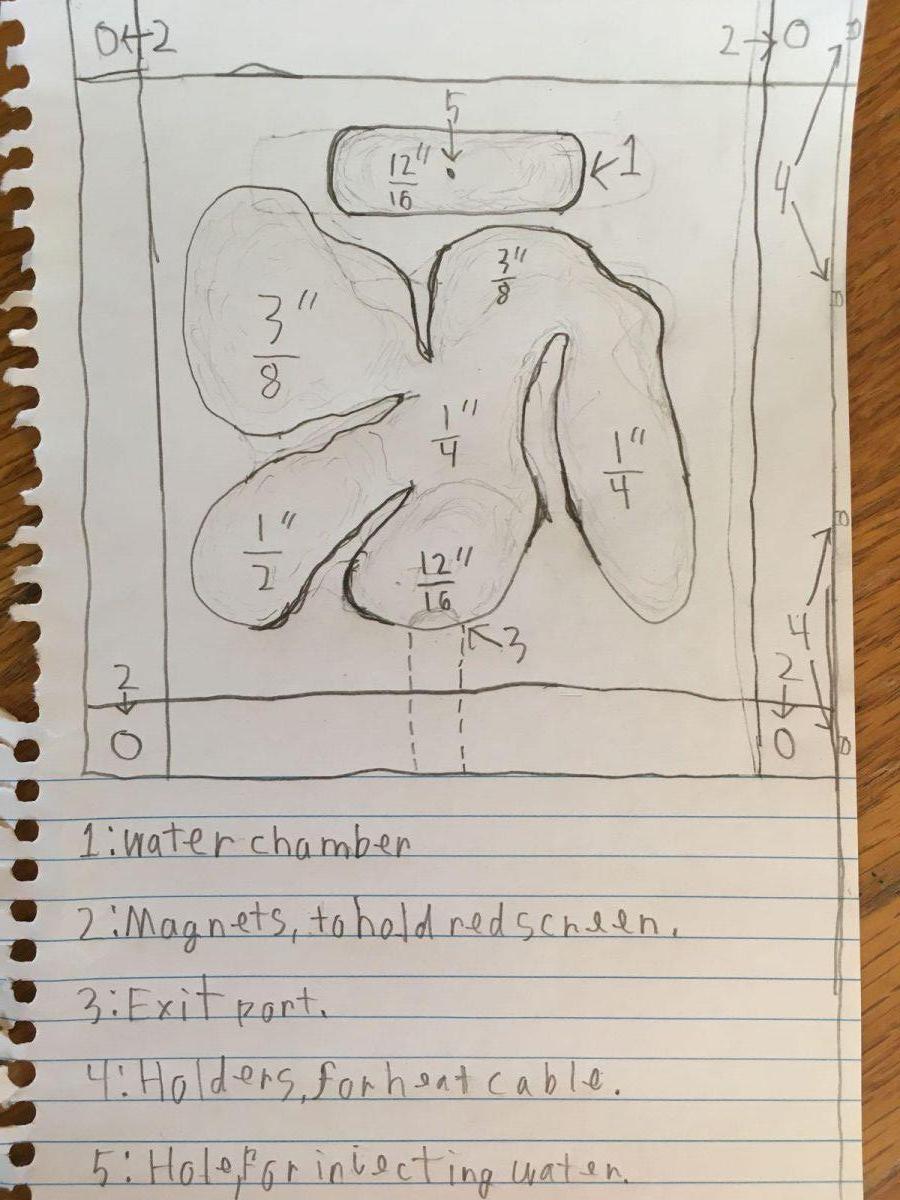 0←2
2→0
5
12"
16
1
4
3"
8
3"
8
1"
4
1"
4
1"
2
12"
16
3
4
2
0
2
0
1:water chamber
2:Magnets, to hold red screen.
3:Exit port.
4:Holders, for heat cable.
5:Hole, for injecting water.